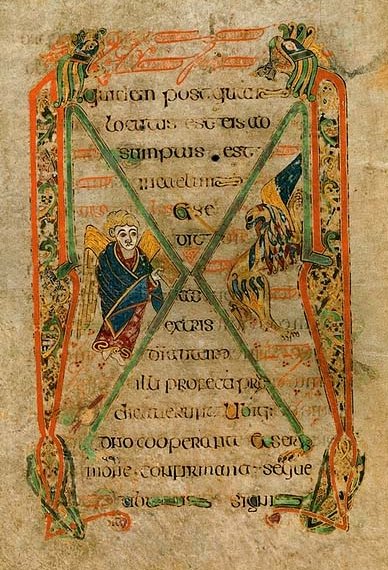 quidem postquam
locutus est eis ad
sumptus est
in celum
& se
dit
ad
extris
di autem
illi profecti pre
dicaverunt ubiq:
dño cooperante & ser
monē confirmante seque
ntibus signis